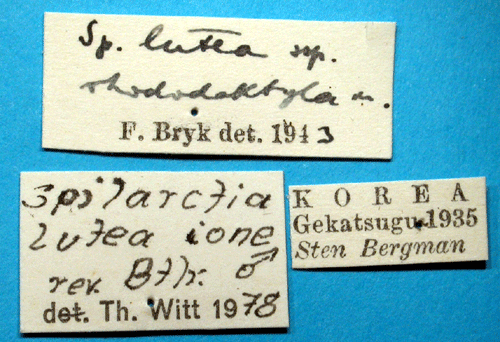 Sp. lutea ssp.
rhododaktyla n.
F. Bryk det. 1943
Spilarctia
lutea ione
rev. Btlr. ♂
det. Th. Witt 1978
KOREA
Gekatsugu 1935
Sten Bergman